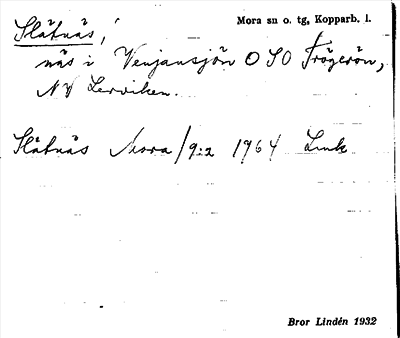 Slåtnäs, Mora sn o. tg, Kopparb. l.
näs i Venjansjön O SO Frögerön,
NV Lerviken.
Slåtnäs Mora / 9:2 1964 Lmk
Bror Lindén 1932